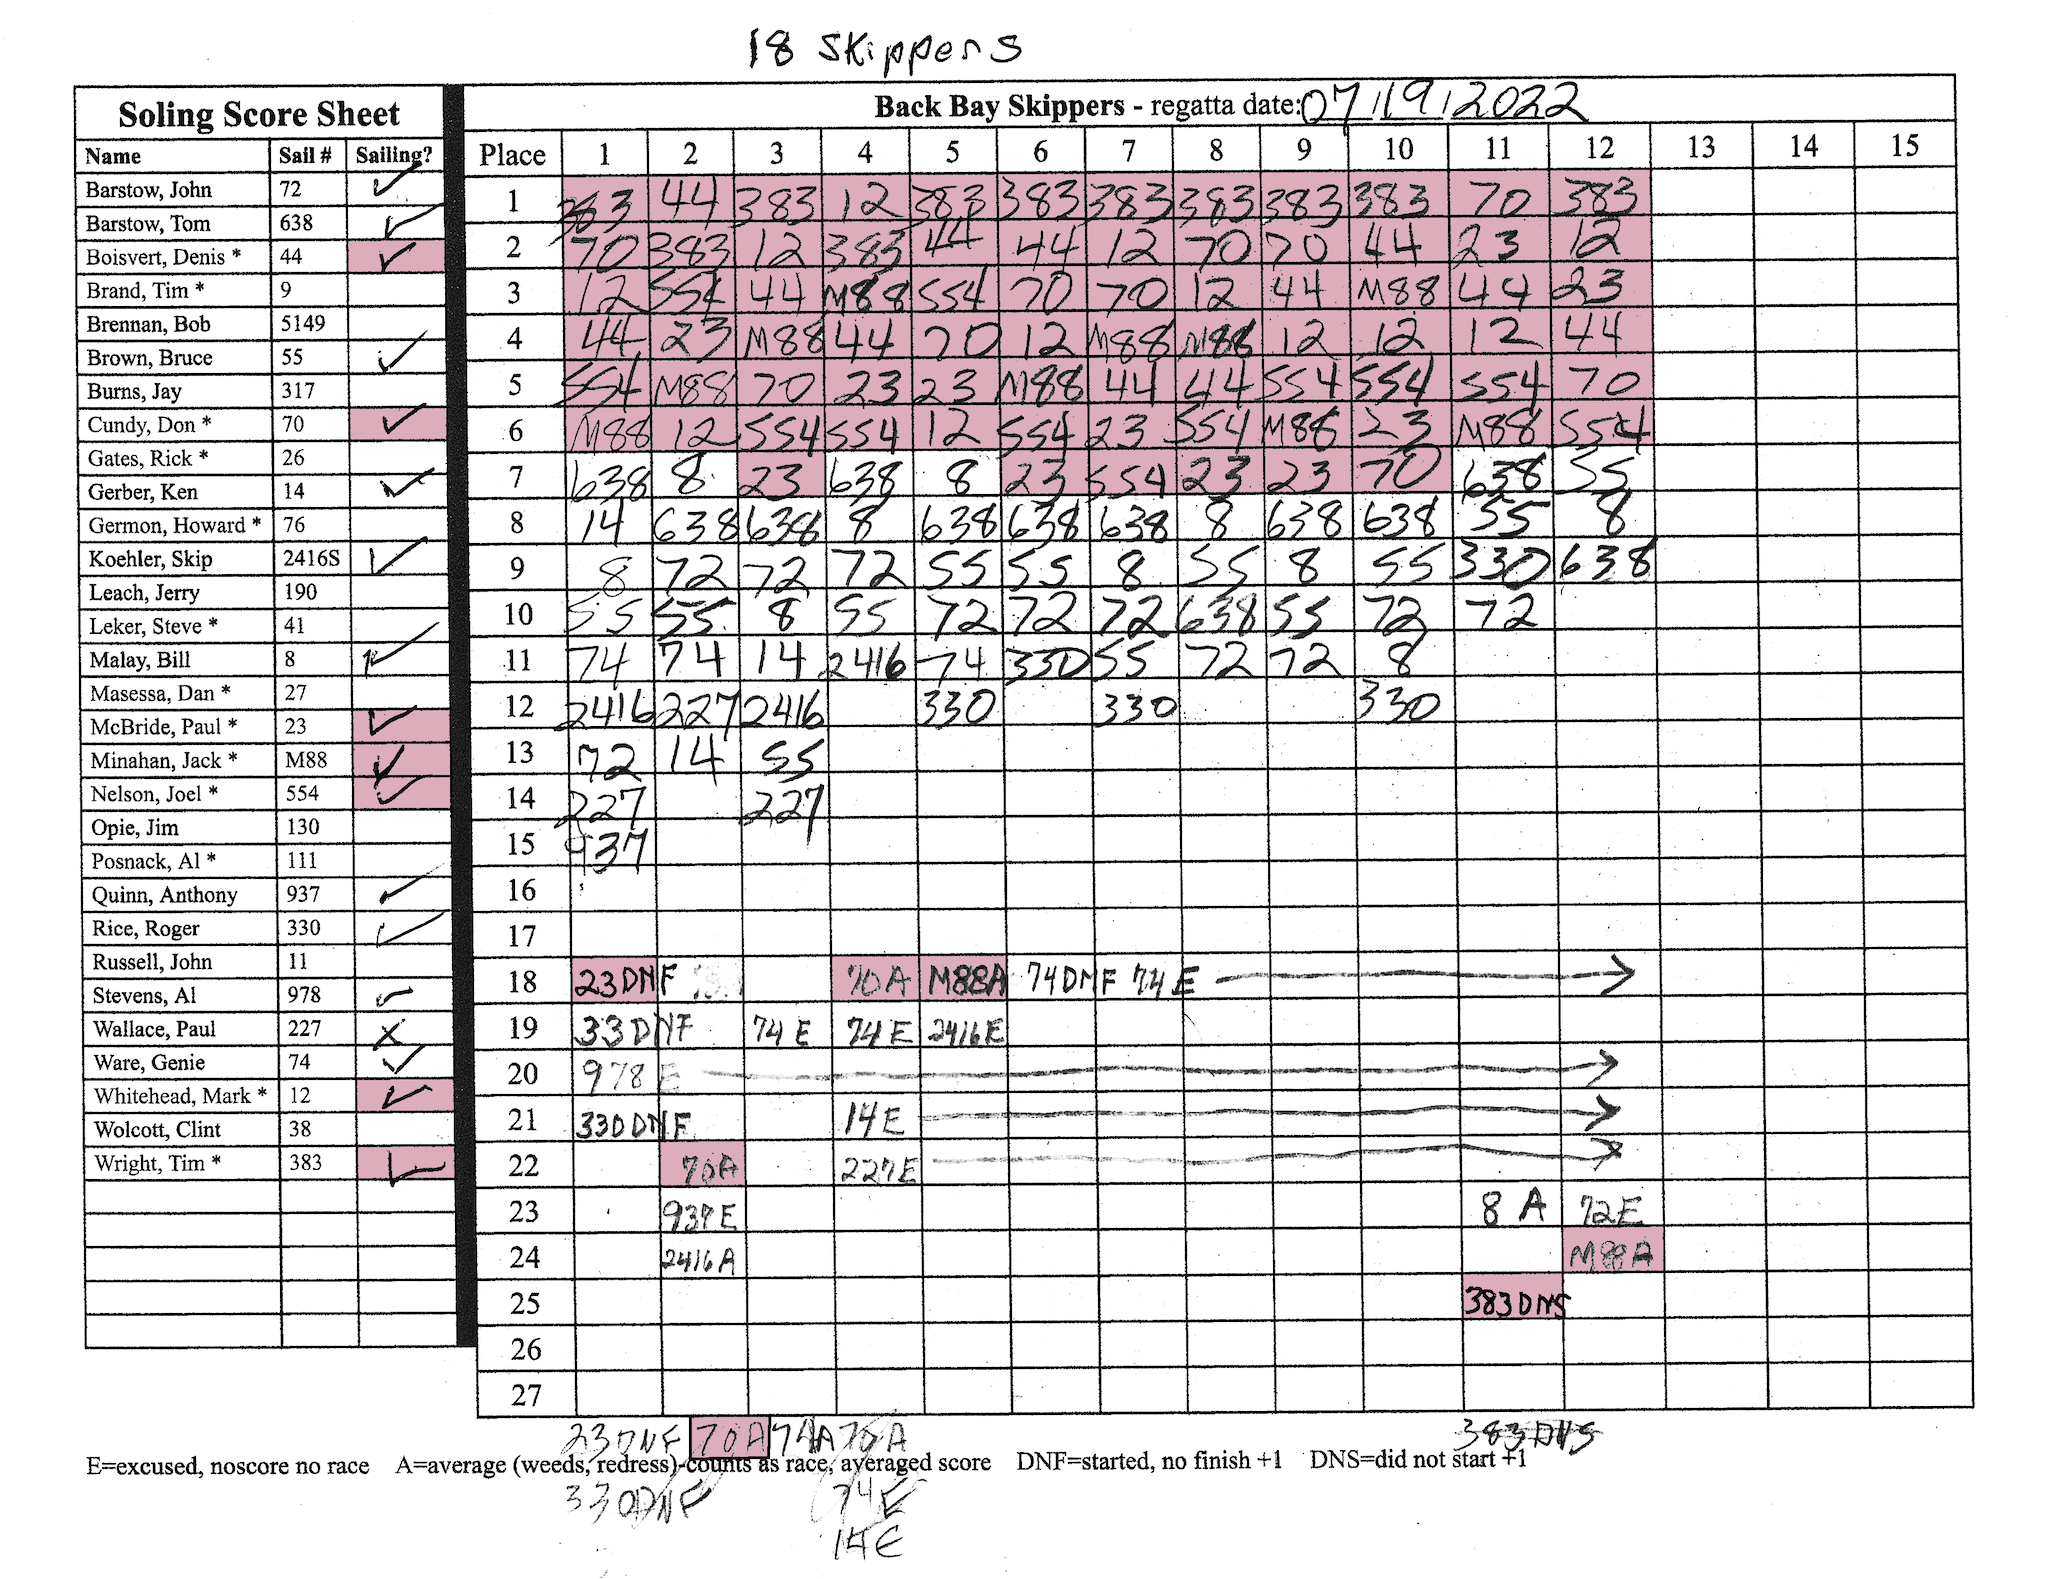 18 Skippers
Soling Score Sheet
Back Bay Skippers - regatta date: 07/19/2022
Name Sail # Sailing?
Place 1 2 3 4 5 6 7 8 9 10 11 12 13 14 15
Barstow, John 72 ✓
Barstow, Tom 638 ✓
Boisvert, Denis * 44 ✓
Brand, Tim * 9
Brennan, Bob 5149
Brown, Bruce 55 ✓
Burns, Jay 317
Cundy, Don * 70 ✓
Gates, Rick * 26
Gerber, Ken 14 ✓
Germon, Howard * 76
Koehler, Skip 2416S ✓
Leach, Jerry 190
Leker, Steve * 41
Malay, Bill 8 ✓
Masessa, Dan * 27
McBride, Paul * 23 ✓
Minahan, Jack * M88 ✓
Nelson, Joel * 554 ✓
Opie, Jim 130
Posnack, Al * 111
Quinn, Anthony 937 ✓
Rice, Roger 330 ✓
Russell, John 11
Stevens, Al 978 ✓
Wallace, Paul 227 X
Ware, Genie 74 ✓
Whitehead, Mark * 12 ✓
Wolcott, Clint 38
Wright, Tim * 383 ✓
1 383 44 383 12 383 383 383 383 383 383 70 383
2 70 383 12 383 44 44 12 70 70 44 23 12
3 12 554 44 M88 554 70 70 12 44 M88 44 23
4 44 23 M88 44 70 12 M88 M88 12 12 12 44
5 554 M88 70 23 23 M88 44 44 554 554 554 70
6 M88 12 554 554 12 554 23 554 M88 23 M88 554
7 638 8 23 638 8 23 554 23 23 70 638 55
8 14 638 638 8 638 638 638 8 638 638 55 8
9 8 72 72 72 55 55 8 55 8 55 330 638
10 55 55 8 55 72 72 72 638 55 72 72
11 74 74 14 2416 74 330 55 72 72 8
12 2416 227 2416 330 330 330
13 72 14 55
14 227 227
15 937
16
17
18 23DNF 70A M88A 74DNF 74E
19 33DNF 74E 74E 2416E
20 978 E
21 330DNF 14E
22 70A 227E
23 937E 8 A 72E
24 2416A M88A
25 383DNS
26
27
23DNF 70A 74A 70A 383DNS
E=excused, noscore no race A=average (weeds, redress)-counts as race, averaged score DNF=started, no finish +1 DNS=did not start +1
330DNF 74E
14E